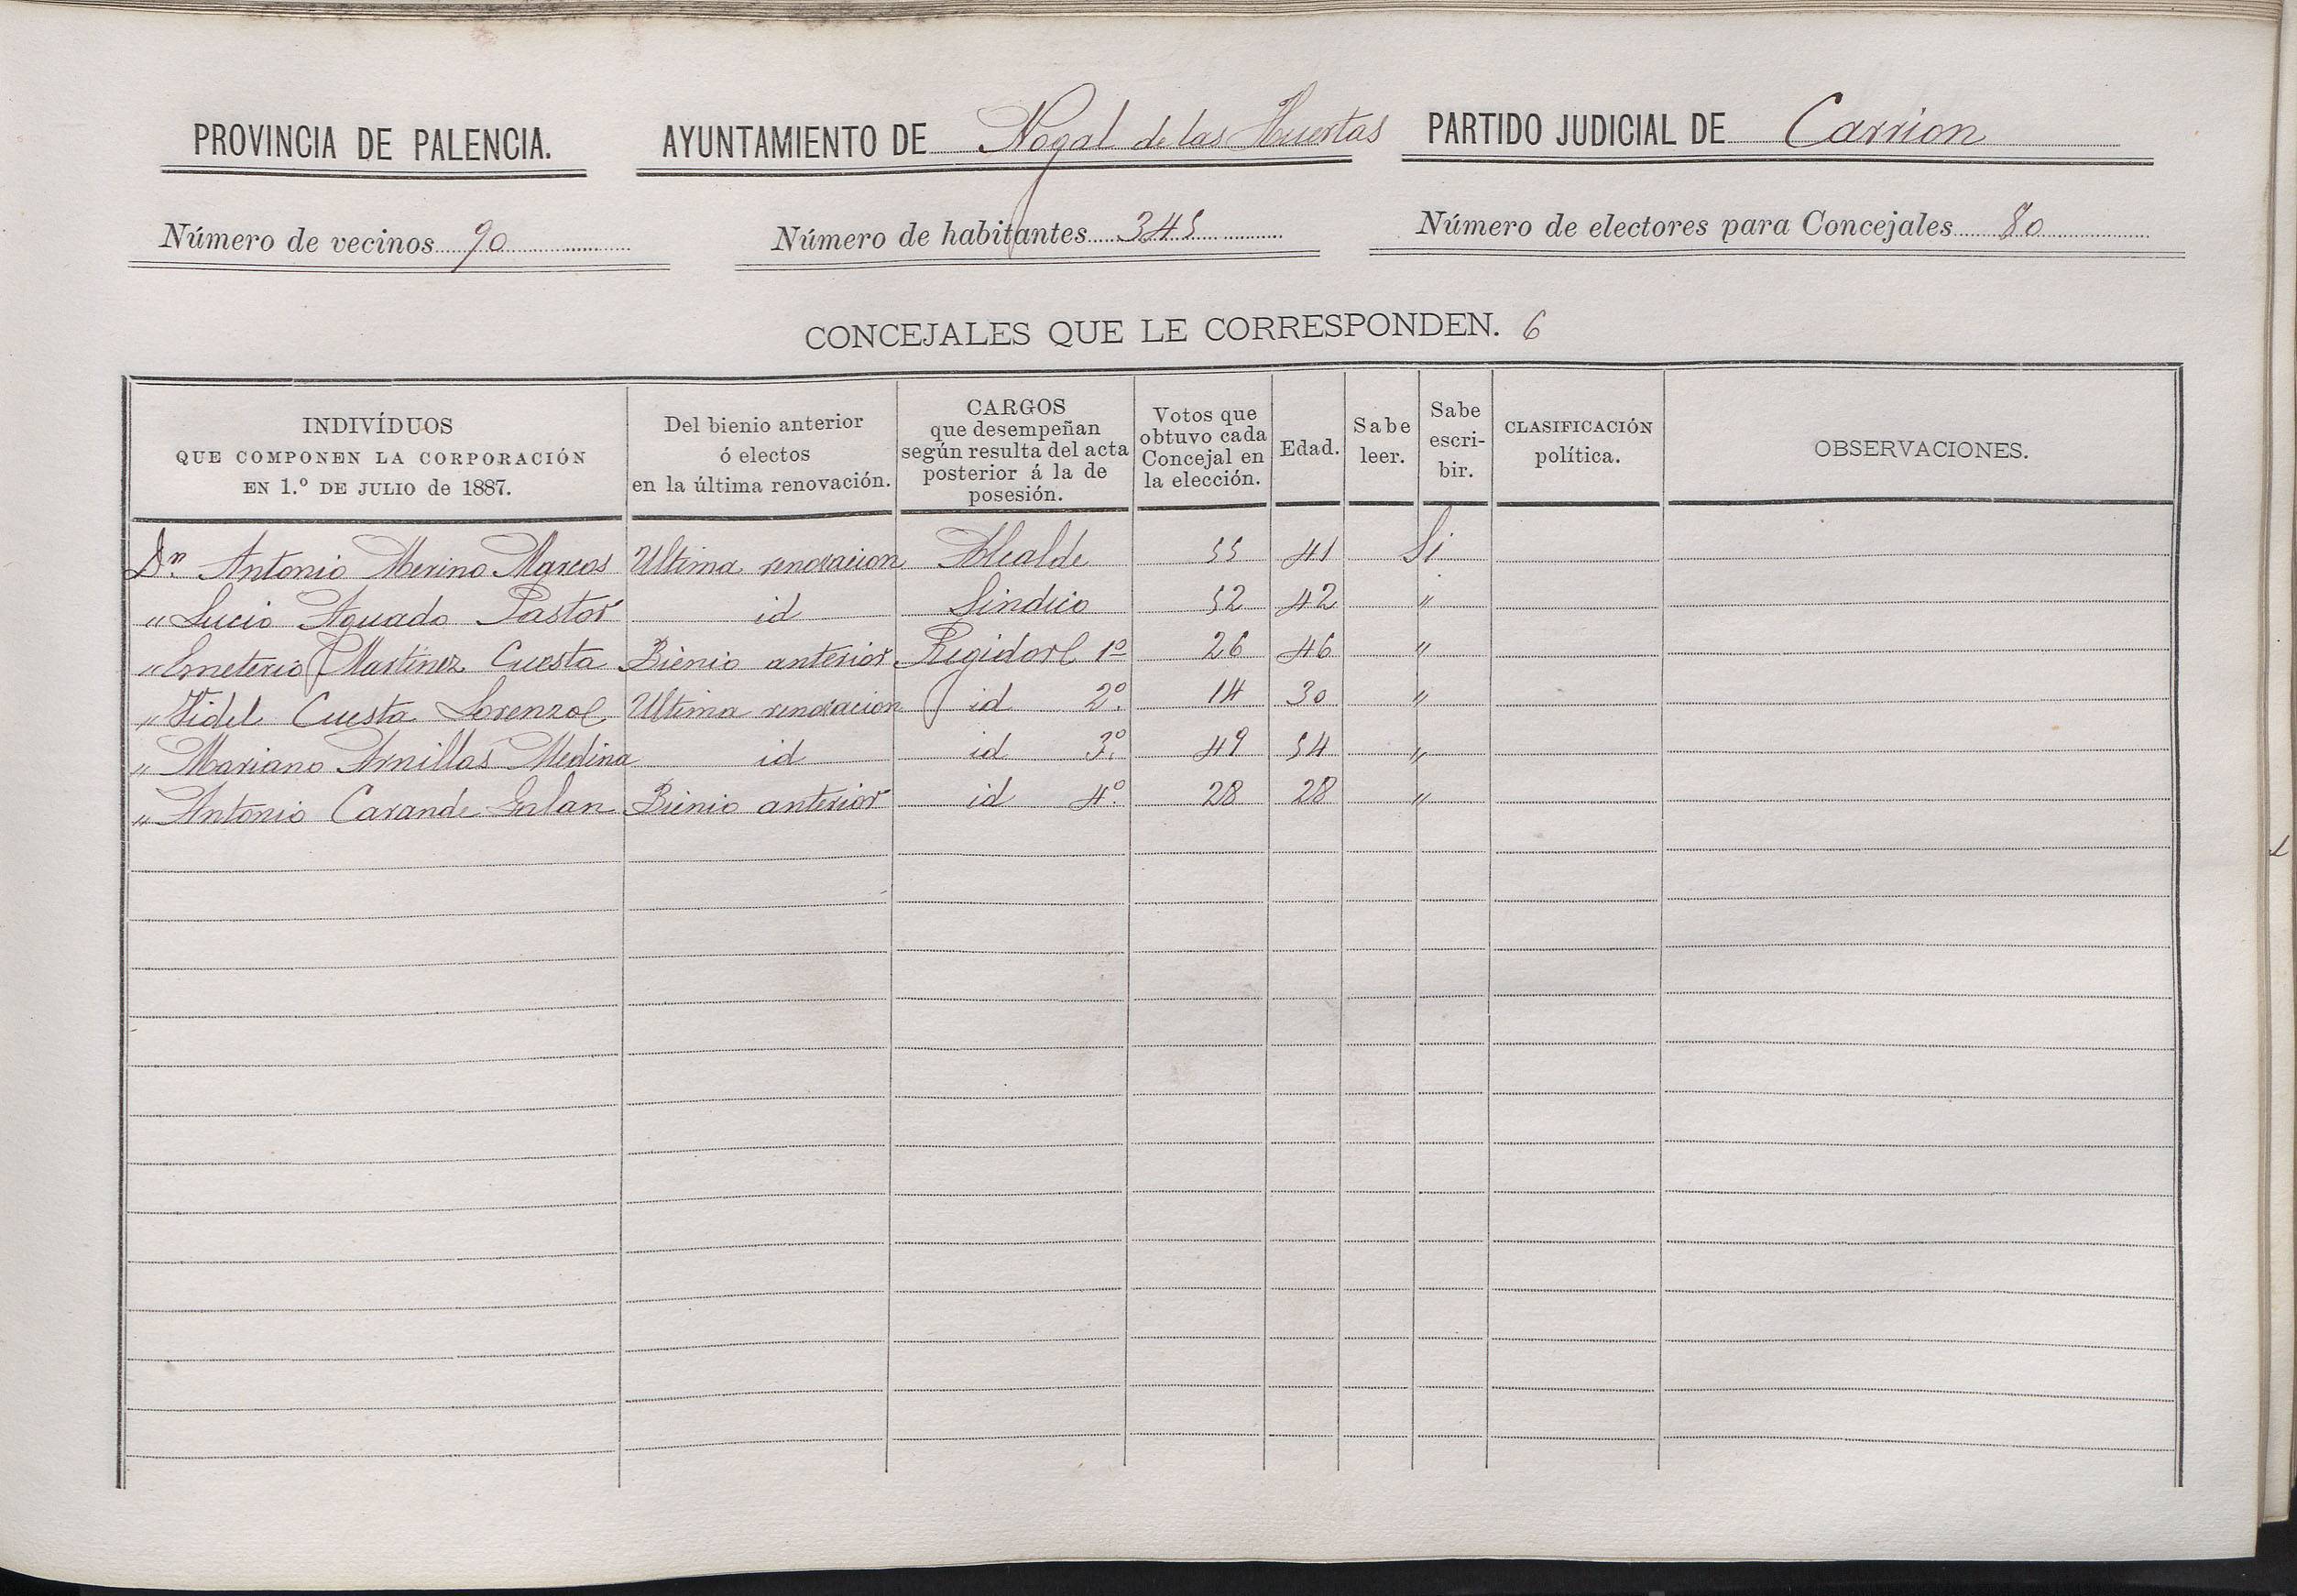 PROVINCIA DE PALENCIA. AYUNTAMIENTO DE Nogal de las Huertas PARTIDO JUDICIAL DE Carrion
Número de vecinos 90 Número de habitantes 345 Número de electores para Concejales 80
CONCEJALES QUE LE CORRESPONDEN. 6
INDIVÍDUOS
QUE COMPONEN LA CORPORACIÓN
EN 1.º DE JULIO de 1887.
Del bienio anterior
ó electos
en la última renovación.
CARGOS
que desempeñan
según resulta del acta
posterior á la de
posesión.
Votos que
obtuvo cada
Concejal en
la elección.
Edad.
Sabe
leer.
Sabe
escri-
bir.
CLASIFICACIÓN
política.
OBSERVACIONES.
Dn. Antonio Merino Marcos Ultima renovacion Alcalde 55 41 Si
" Lucio Aguado Pastor id Sindico 52 42 "
" Emeterio Martinez Cuesta Bienio anterior Regidor 1º 26 46 "
" Fidel Cuesta Lorenzo Ultima renovacion id 2º 14 30 "
" Mariano Arnillas Medina id id 3º 49 54 "
" Antonio Carande Galan Bienio anterior id 4º 28 28 "